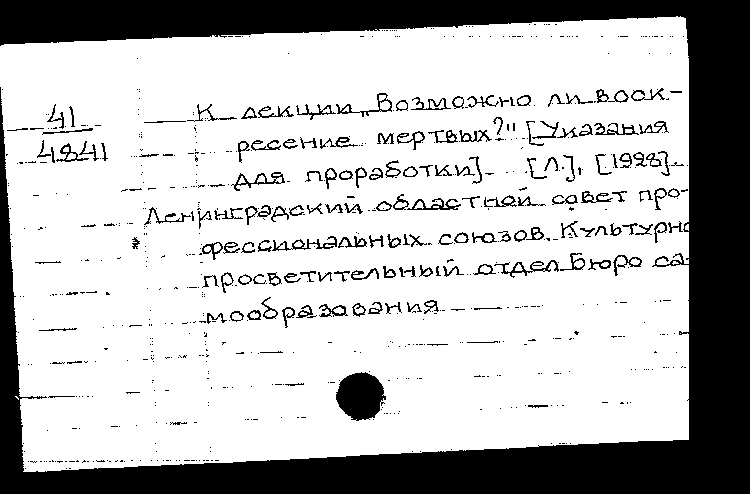 41
4841
К лекции „Возможно ли воск-
ресение мертвых?" [Указания
для проработки]. [Л.], [1928].
Ленинградский областной совет про-
фессиональных союзов. Культурно
просветительный отдел Бюро са-
мообразования